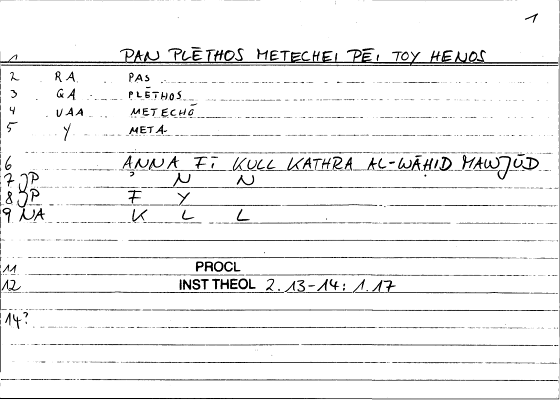 1
1 PAN PLĒTHOS METECHEI PĒI TOY HENOS
2 RA PAS
3 GA PLĒTHOS
4 VAA METECHŌ
5 Y META-
6 ĀNNA FĪ KULL KATHRA AL-WĀḤID MAWJŪD
7 JP ʾ N N
8 JP F Y
9 NA K L L
11 PROCL
12 INST THEOL 2.13-14: 1.17
14?